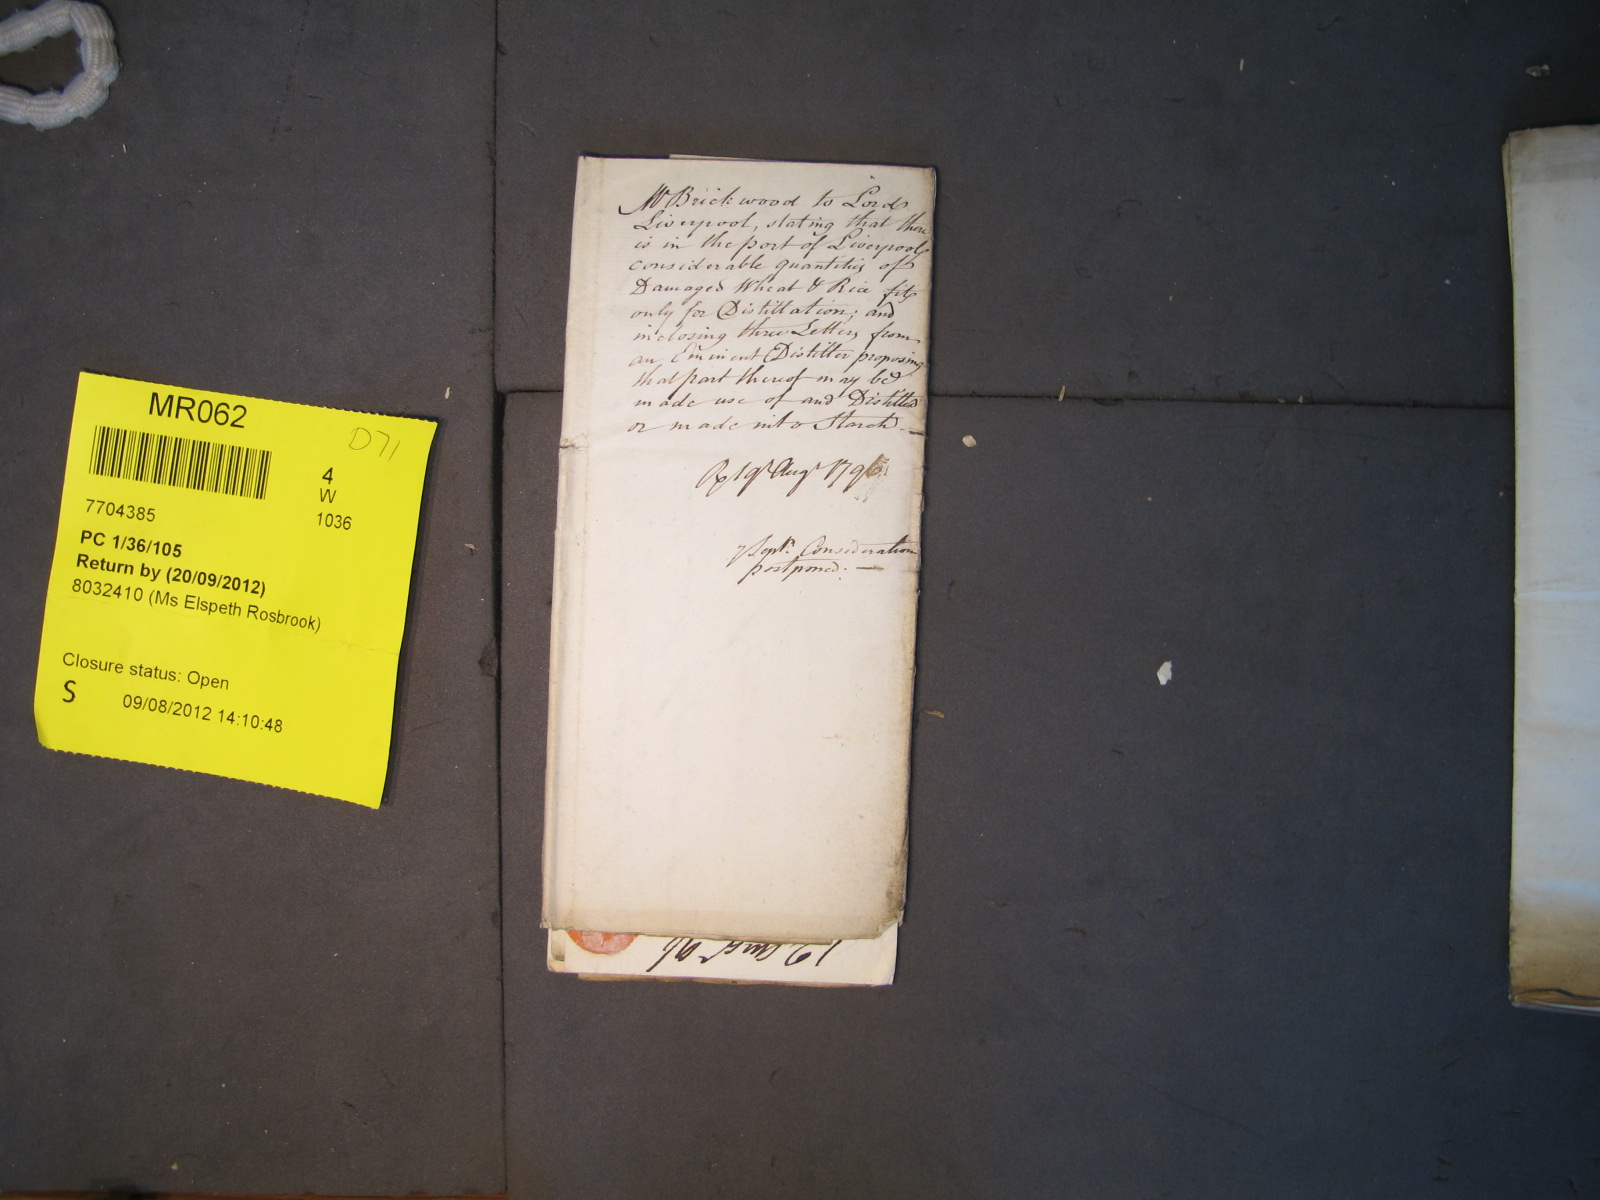 MR062
D71
4
W
1036
7704385
PC 1/36/105
Return by (20/09/2012)
8032410 (Ms Elspeth Rosbrook)
Closure status: Open
S
09/08/2012 14:10:48
Mr Brickwood to Lord
Liverpool, stating that there
is in the port of Liverpool
considerable quantities of
Damaged Wheat & Rice fit
only for Distillation; and
inclosing three Letters from
an Eminent Distiller proposing
that part thereof may be
made use of and Distilled
or made into Starch.—
Rx 19th Augt 1796.
7 Septr. Consideration
postponed.—
12 Augt 96